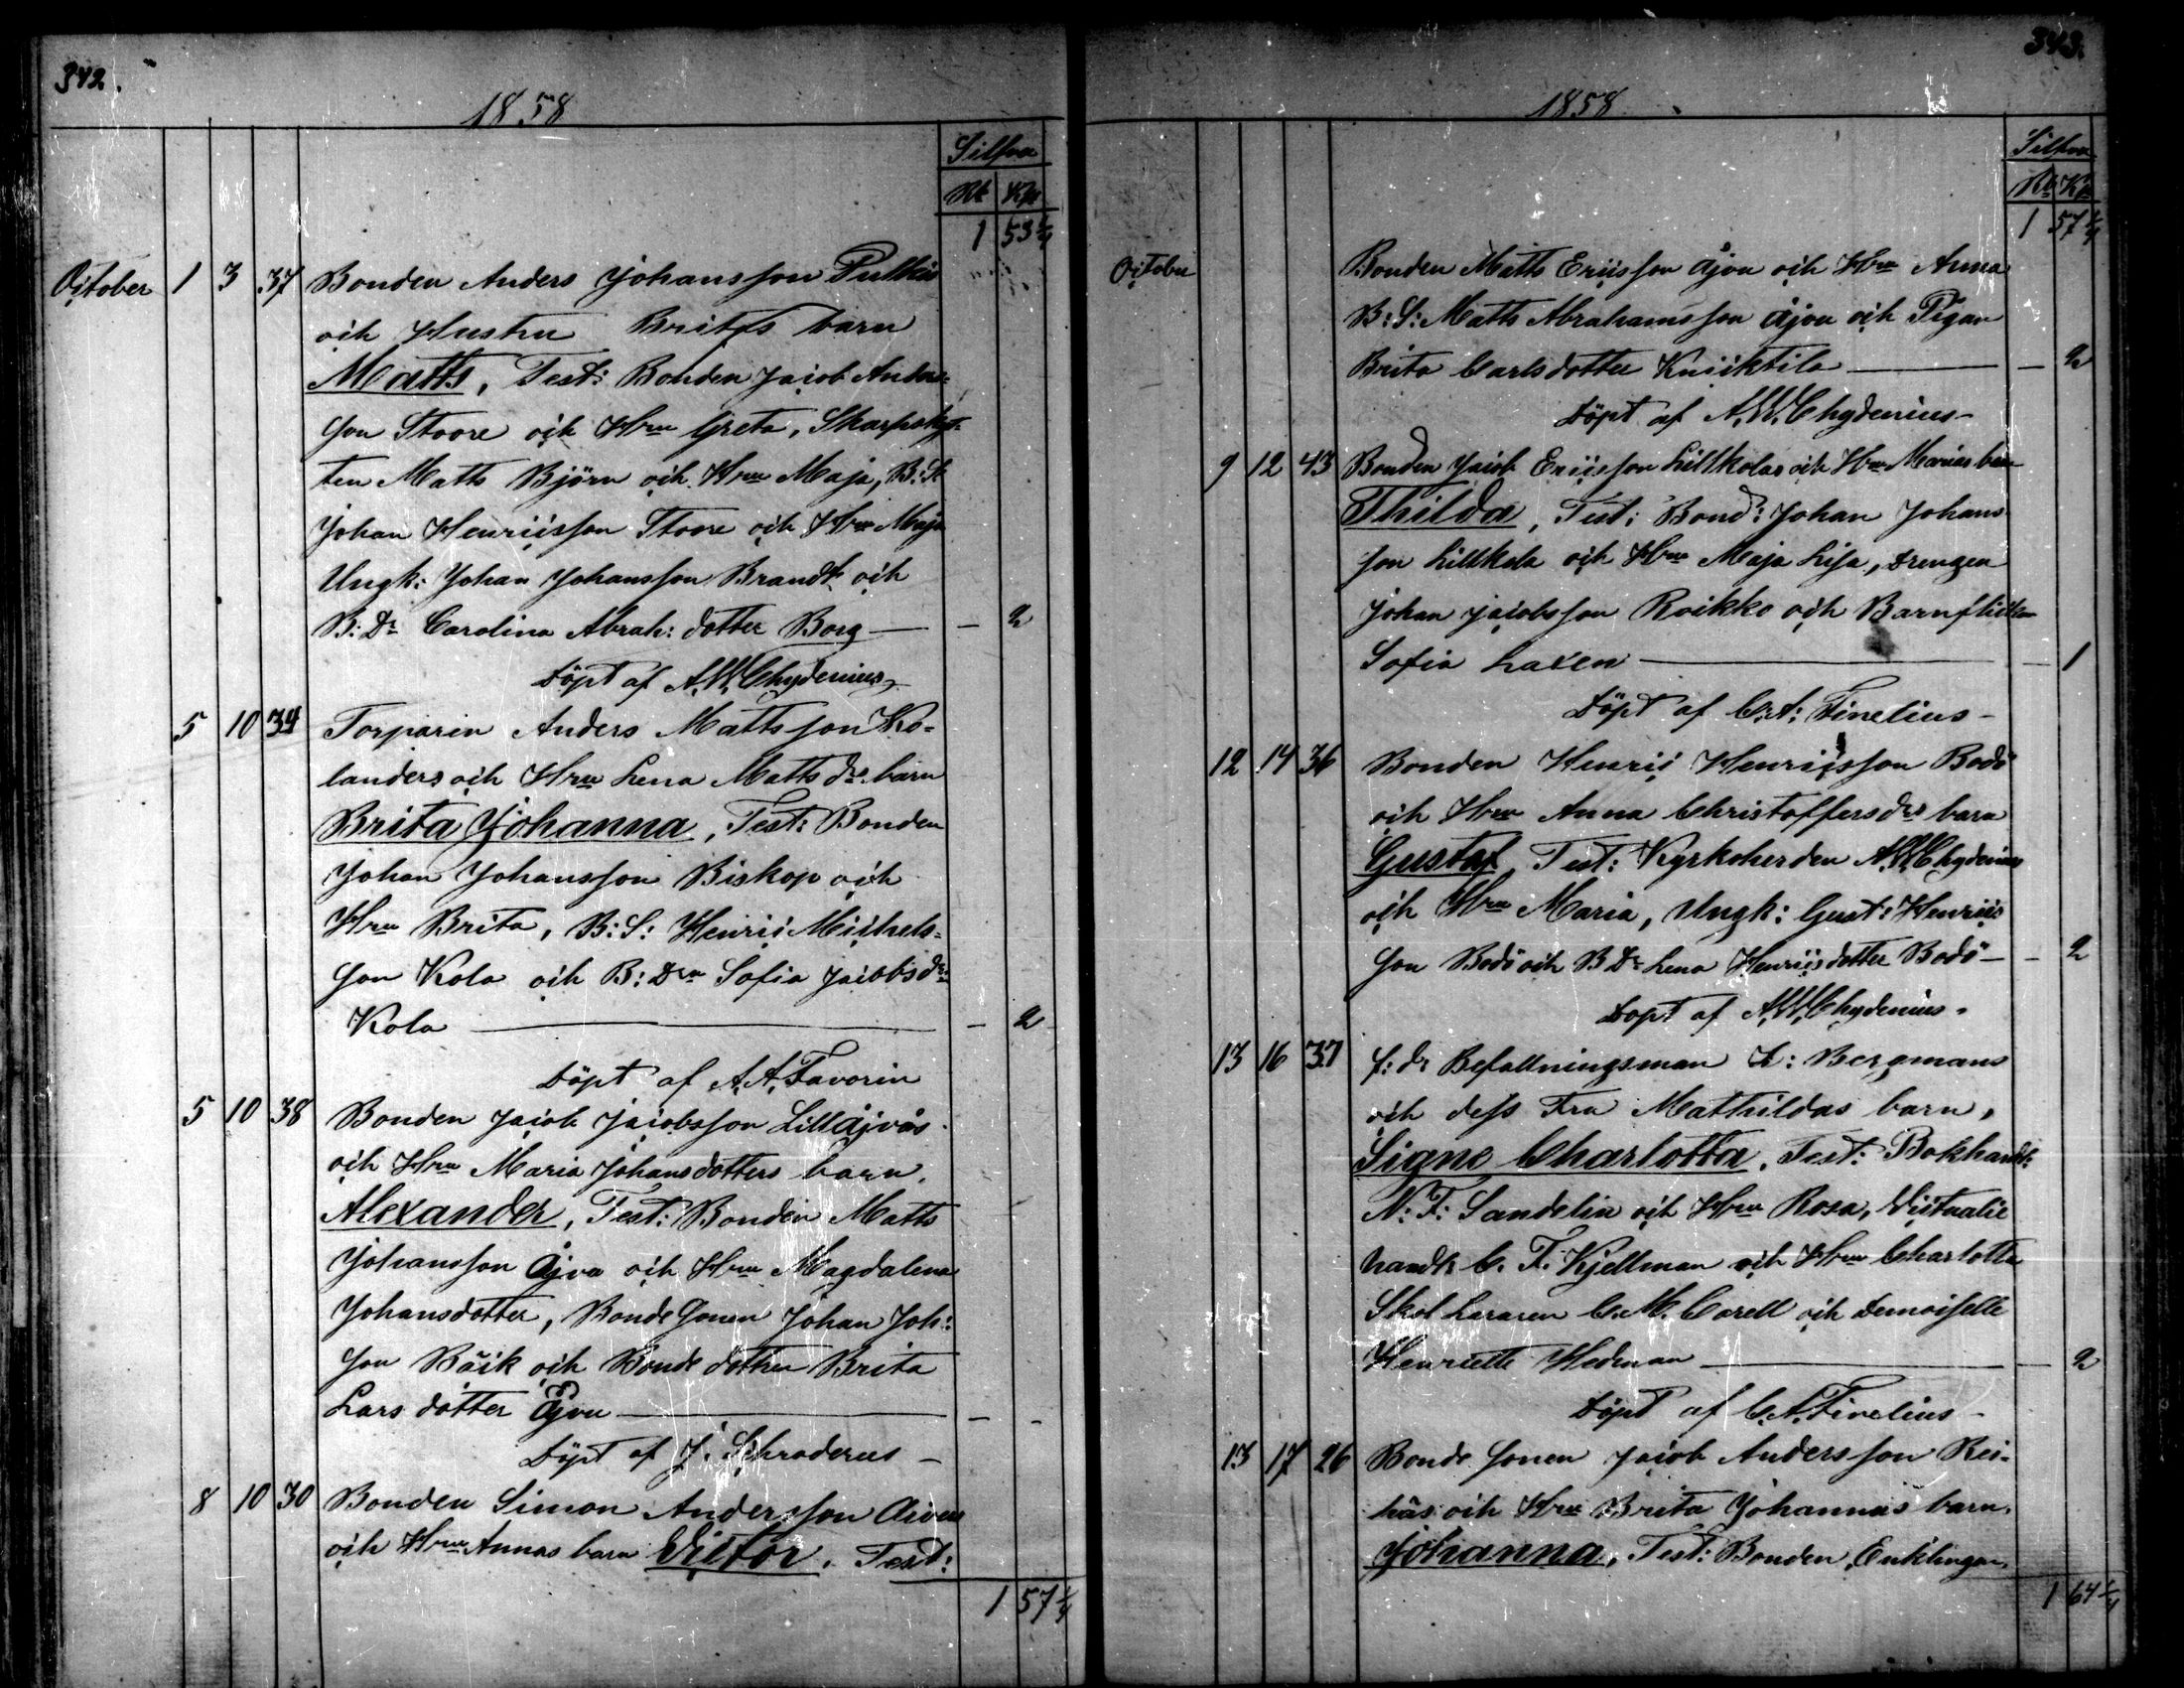 342.
1858
Silfver
Rb Kp
1 53 1/4
October 1 3 37 Bonden Anders Johansson Pulkis
och Hustru Britas barn
Matts, Test: Bonden Jacob Anders-
son Stoore och Hru Greta, Skarpskyt-
ten Matts Björn och Hru Maja, B: S.
Johan Henricsson Stoore och Hru Maja
Ungk: Johan Johansson Brandt och
B: Dr Carolina Abrah: dotter Borg — — 2
Döpt af A.W. Chydenius
5 10 34 Torparen Anders Mattsson Ko-
landers och Hru Lena Mattsdrs barn
Brita Johanna, Test: Bonden
Johan Johansson Biskop och
Hru Brita, B: S: Henric Michels-
son Kola och B: Drn Sofia Jacobsdr
Kola — — 2
Döpt af A.A. Favorin
5 10 38 Bonden Jacob Jacobsson Lillåjvas
och Hru Maria Johansdotters barn.
Alexander, Test: Bonden Matts
Johansson Åjva och Hru Magdalena
Johansdotter, Bondesonen Johan Joh:
son Bäck och Bondedotter Brita
Larsdotter Åjva — — -
Döpt af J. Schroderus —
8 10 30 Bonden Simon Andersson
och Hru Annas barn Victor. Test:
1 57 1/4
343.
1858
Silfver
Rb Kp
1 57 1/4
October Bonden Matts Ericsson Åjva och Hru Anna
B: S: Matts Abrahamsson Åjva och Pigan
Brita Carlsdotter — — 2
Döpt af A.W. Chydenius —
9 12 43 Bonden Jacob Ericsson Lillkolas och Hru Marias barn
Thilda, Test: Bond: Johan Johans
son Lillkola och Hru Maja Lisa, Drengen
Johan Jacobsson Roikko och Barnflickan
Sofia Laxen — — 1
Döpt af C: A: Finelius —
12 14 36 Bonden Henric Henricsson Bodö
och Hru Anna Christoffersdrs barn
Gustaf, Test: Kyrkoherden A.W. Chydenius
och Hru Maria, Ungk: Gust: Henrics
son Bodö och B Dr Lena Henricsdotter Bodö — — 2
Döpt af A.W. Chydenius.
13 16 37 f: d: Befallningsman Bergmans
och dess Fru Mathildas barn,
Signe Charlotta, Test: Bokhandl:
N: F: Sandelin och Hru Rosa, Victualie
handl: C. F. Kjellman och Hru Charlotta
Skol Lararen C. M. Carell och Demoiselle
Henriette Hedman — — 2
Döpt af C. A. Finelius —
13 17 26 Bondesonen Jacob Andersson Rei-
häs och Hru Brita Johannas barn.
Johanna, Test: Bonden, Enklingen
1 64 1/4